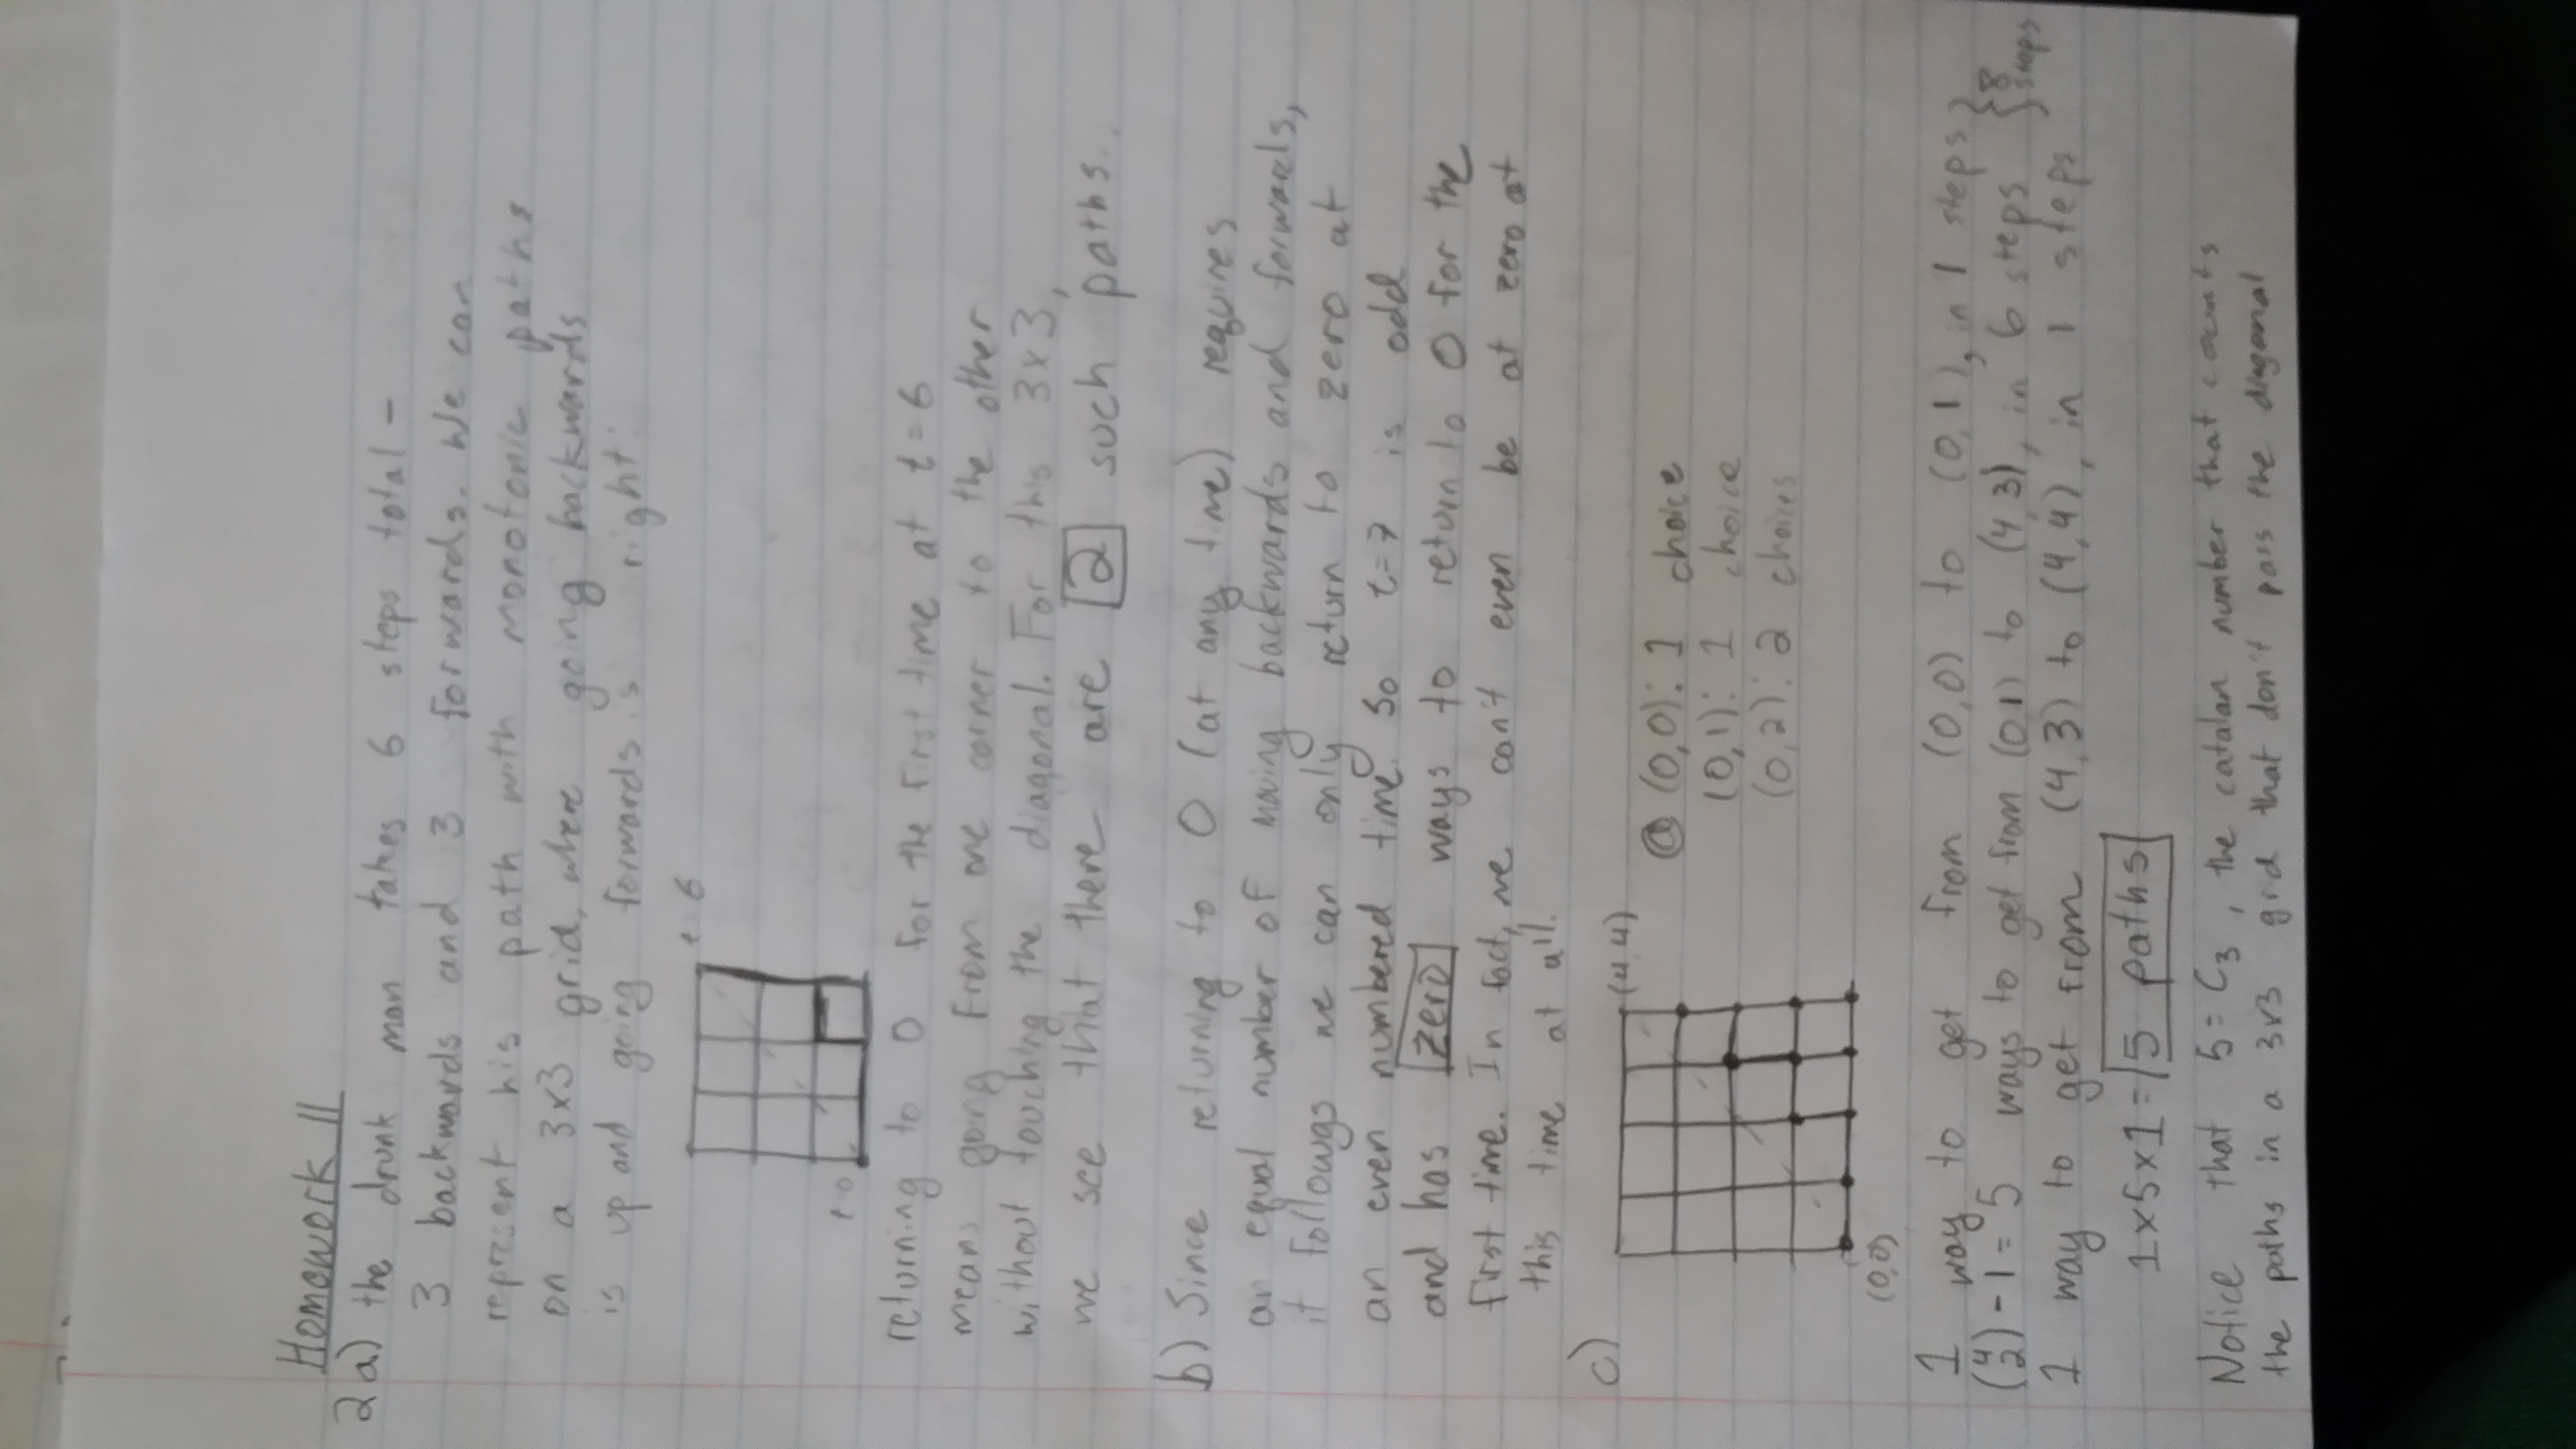 Homework 11
2a) the drunk man takes 6 steps total -
3 backwards and 3 forwards. We can
represent his path with monotonic paths
on a 3x3 grid, where going backwards
is up and going forwards is right:
t=0
t=6
returning to 0 for the first time at t=6
means going from one corner to the other
without touching the diagonal. For this 3x3,
we see that there are 2 such paths.
b) Since returning to 0 (at any time) requires
an equal number of moving backwards and forwards,
it follows we can only return to zero at
an even numbered time. So t=7 is odd
and has zero ways to return to 0 for the
first time. In fact, we can't even be at zero at
this time at all.
c)
(4,4)
(0,0)
@ (0,0): 1 choice
(0,1): 1 choice
(0,2): 2 choices
1 way to get from (0,0) to (0,1), in 1 steps
(4 2) - 1 = 5 ways to get from (0,1) to (4,3), in 6 steps
1 way to get from (4,3) to (4,4), in 1 steps
} 8 steps
1x5x1= 5 paths
Notice that 5 = C3, the catalan number that counts
the paths in a 3x3 grid that don't pass the diagonal